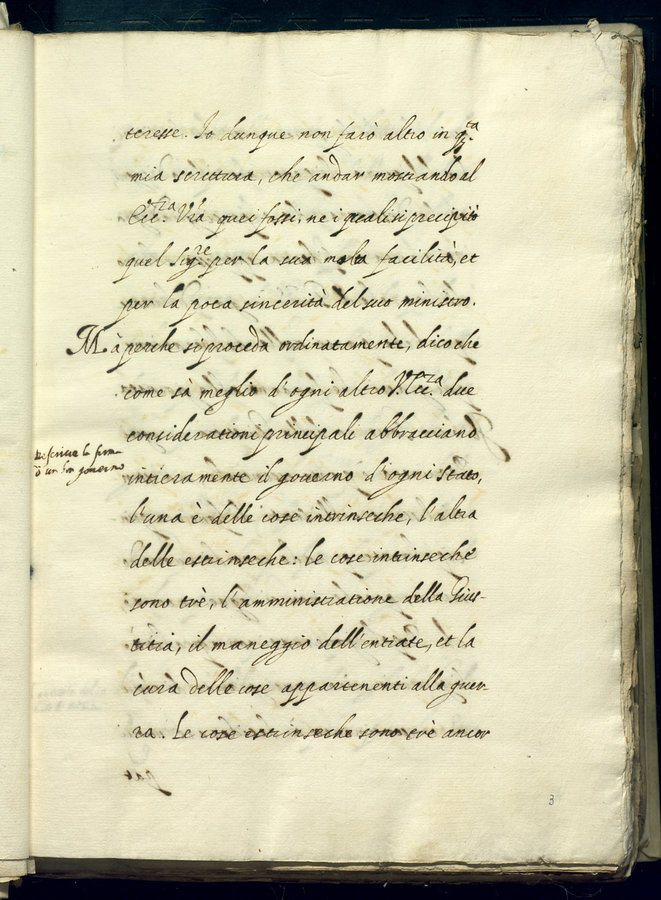 teresse. Io dunque non farò altro in q.ta
mia scrittura, che andar mostrando al
Ecc.za V.ra quei fossi, ne i quali si precipitò
quel Sig.re per la sua mala facilità, et
per la poca sincerità del suo ministro.
Mà perche si proceda ordinatamente, dico che
come sà meglio d'ogni altro V. Ecc.za due
considerationi principali abbracciano
Descrive la forma
d'un bon governo
intieramente il governo d'ogni stato,
l'una è delle cose intrinseche, l'altra
delle estrinseche: le cose intrinseche
sono trè, l'amministratione della Gius-
titia, il maneggio dell'entrate, et la
cura delle cose appartenenti alla guer-
ra. Le cose estrinseche sono trè ancor
par
3